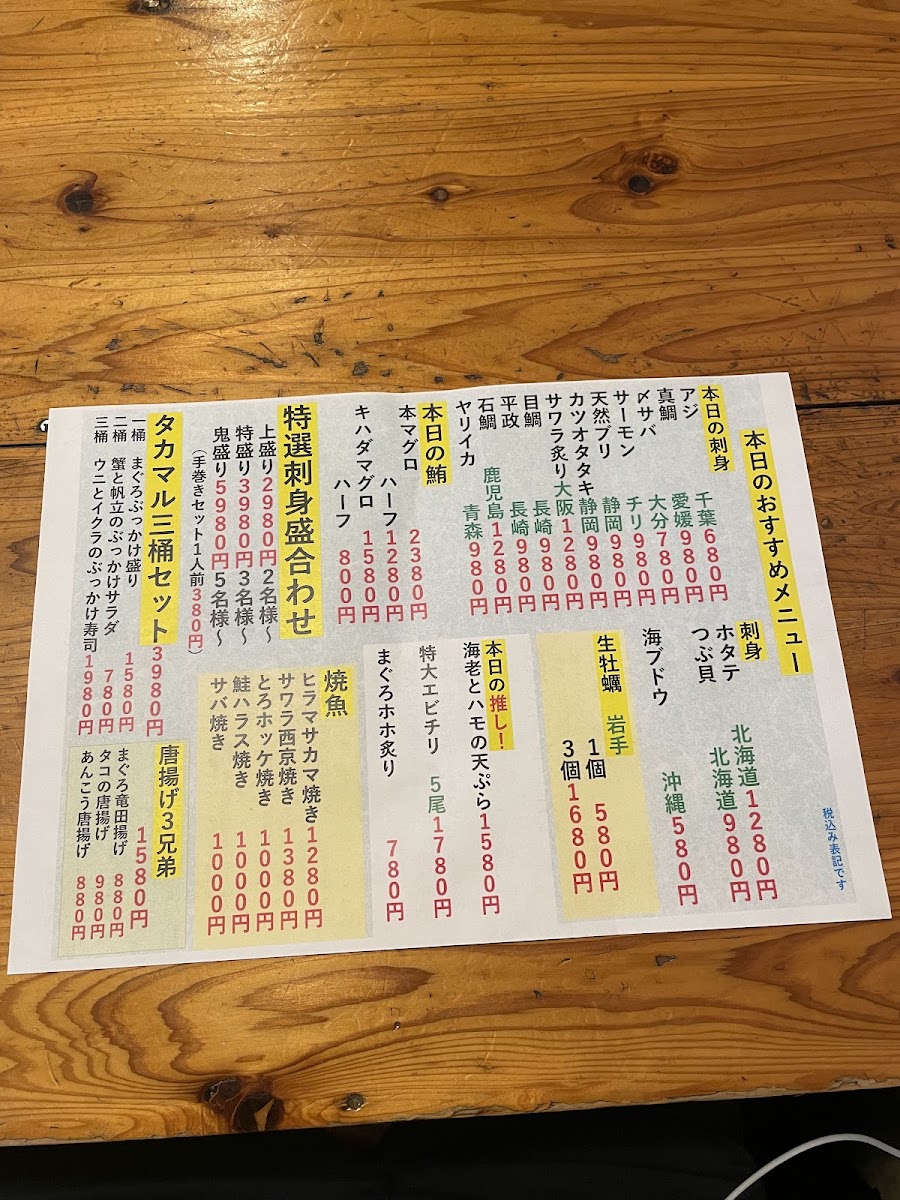 本日のおすすめメニュー
本日の刺身
アジ 千葉680円
真鯛 愛媛980円
〆サバ 大分780円
サーモン チリ980円
天然ブリ 静岡980円
カツオタタキ 静岡980円
サワラ炙り大阪1280円
目鯛 長崎980円
平政 長崎980円
石鯛 鹿児島1280円
ヤリイカ 青森980円
本日の鮪
本マグロ 2380円
ハーフ1280円
キハダマグロ 1580円
ハーフ 800円
特選刺身盛合わせ
上盛り2980円2名様～
特盛り3980円3名様～
鬼盛り5980円5名様～
(手巻きセット1人前380円)
タカマル三桶セット3980円
一桶 まぐろぶっかけ盛り 1580円
二桶 蟹と帆立のぶっかけサラダ 780円
三桶 ウニとイクラのぶっかけ寿司 1980円
税込み表記です
刺身
ホタテ 北海道1280円
つぶ貝 北海道980円
海ブドウ 沖縄580円
生牡蠣 岩手
1個 580円
3個1680円
本日の推し!
海老とハモの天ぷら1580円
特大エビチリ 5尾1780円
まぐろホホ炙り 780円
焼魚
ヒラマサカマ焼き1280円
サワラ西京焼き 1380円
とろホッケ焼き 1000円
鮭ハラス焼き 1000円
サバ焼き 1000円
唐揚げ3兄弟
1580円
まぐろ竜田揚げ 880円
タコの唐揚げ 980円
あんこう唐揚げ 880円